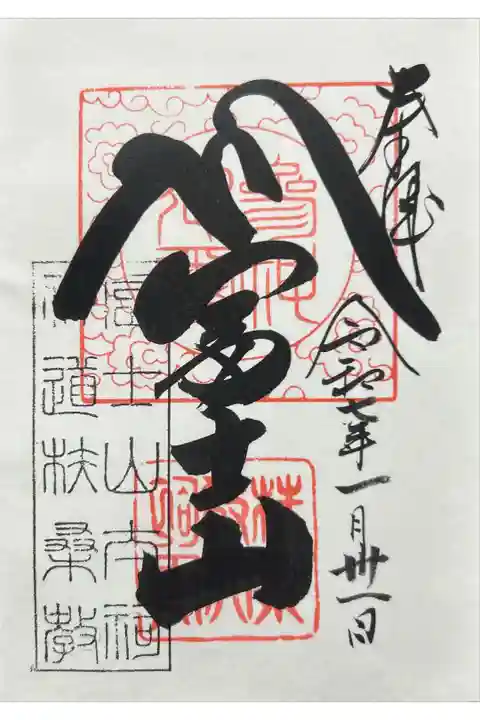 奉拝
令和七年一月卅一日
富士山
富士山本祠
神道扶桑教